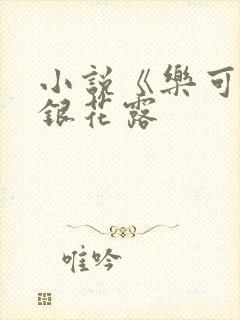 小說《樂可
銀花露
唯吟